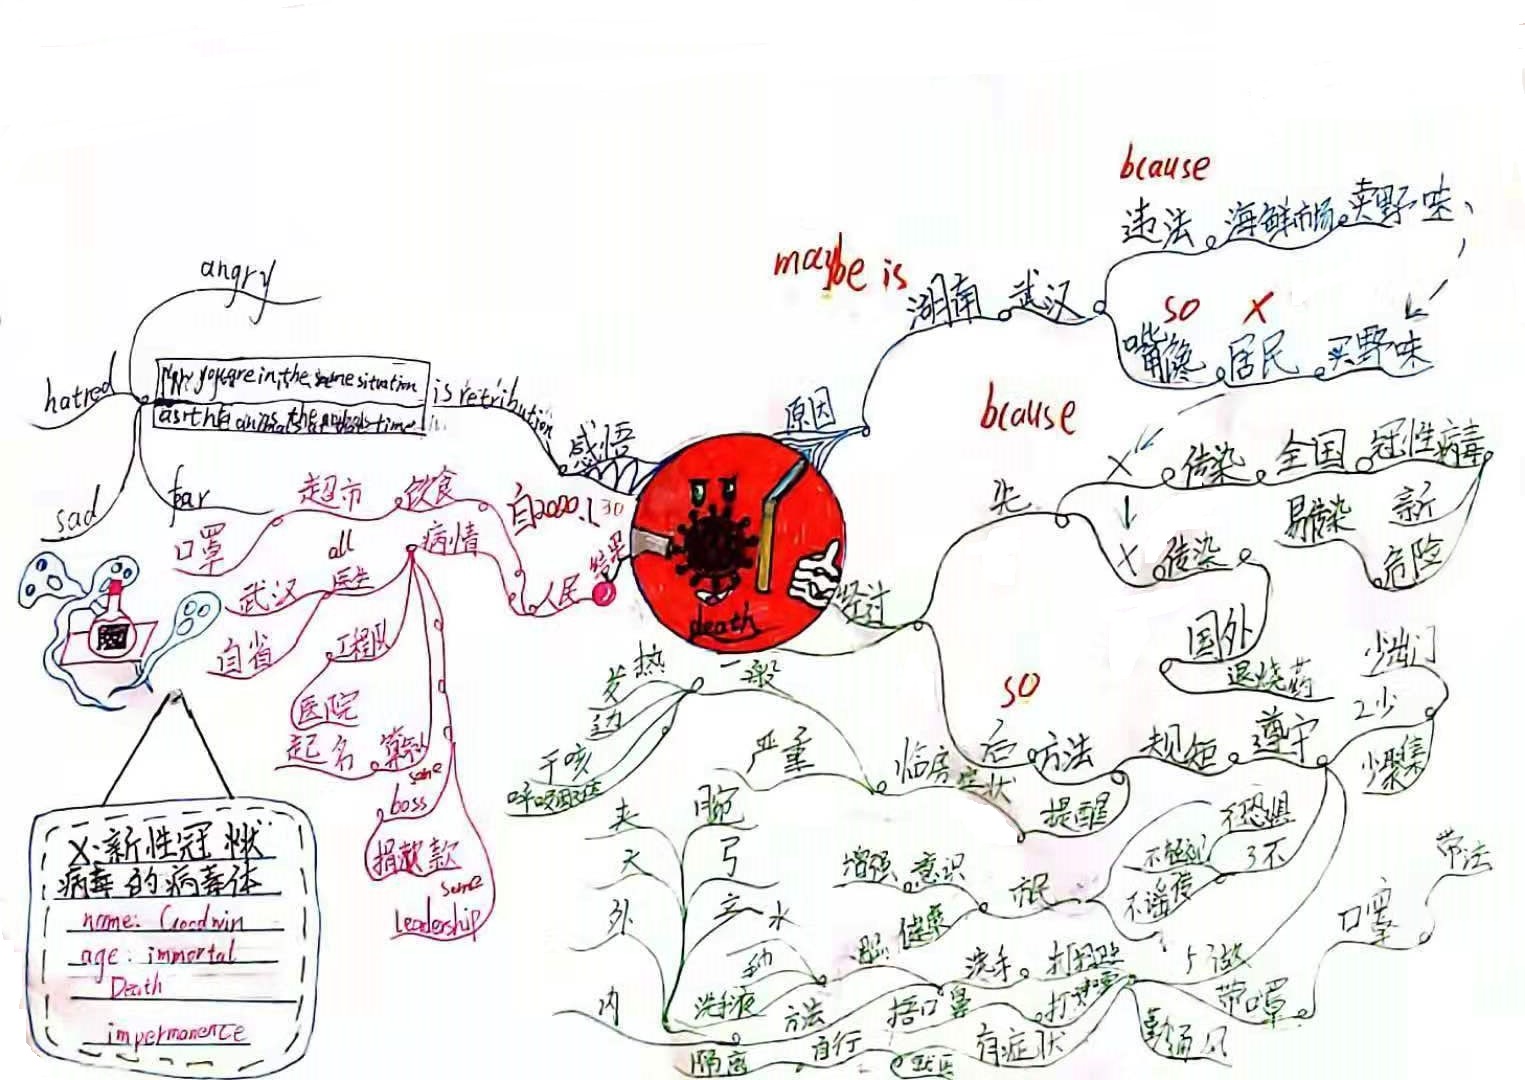 bcause
违法 海鲜市场 卖野味
maybe is
湖南 武汉
so X
嘴馋 居民 买野味
angry
hatred
is retribution
sad
fear
感悟
原因
bcause
先
X 传染 全国 冠性病毒
易传染 新
危险
X 传染
国外
退烧药
自2020.1.30
结果
人民
饮食
超市
口罩
病情
all
医生
武汉
自省
工程队
医院
起名
some
boss
捐款
some
leadership
death
经过
so
后 方法 规矩 遵守
少出门
2少
少聚集
提醒
一般
发热
干咳
严重
临床症状
夹
大
外
内
腕
弓
立
水
增强 意识
市民
健康
不恐惧
3不
不谣传
洗手
洗手液
方法
捂口鼻
打喷嚏
隔离
自行
就医
有症状
5做
带口罩
勤通风
口罩
带法
X:新性冠状
病毒的病毒体
name: Goodwin
age: immortal
Death
impermanence